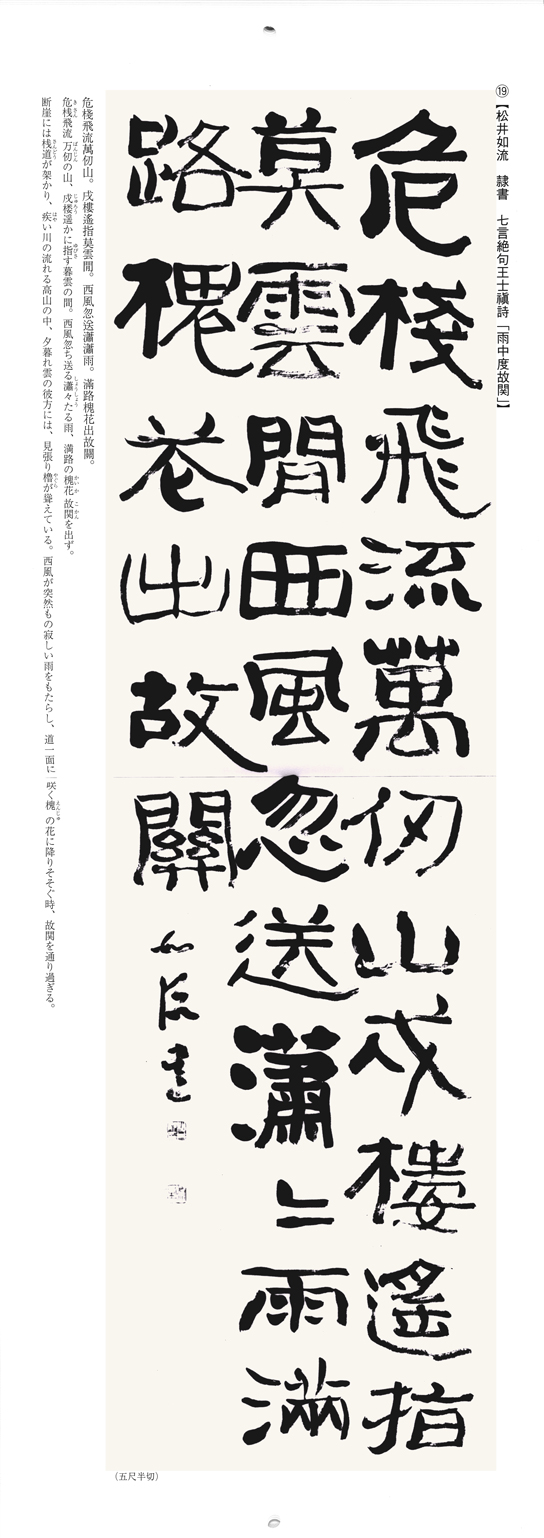 ⑲【松井如流　隷書　七言絶句王士禛詩「雨中度故関」】
危棧飛流萬仞山戍樓遙指
莫雲間西風忽送瀟〻雨滿
路槐花出故關
如流書
（五尺半切）
危棧飛流萬仞山。戍樓遙指莫雲間。西風忽送瀟瀟雨。滿路槐花出故關。
危桟飛流 万仞の山、戍楼遥かに指す暮雲の間。西風忽ち送る瀟々たる雨、満路の槐花 故関を出ず。
断崖には桟道が架かり、疾い川の流れる高山の中、夕暮れ雲の彼方には、見張り櫓が聳えている。西風が突然もの寂しい雨をもたらし、道一面に咲く槐の花に降りそそぐ時、故関を通り過ぎる。